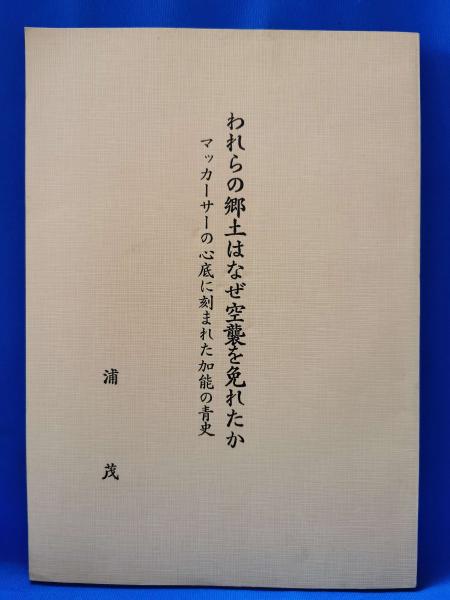 われらの郷土はなぜ空襲を免れたか
マッカーサーの心底に刻まれた加能の青史
浦 茂